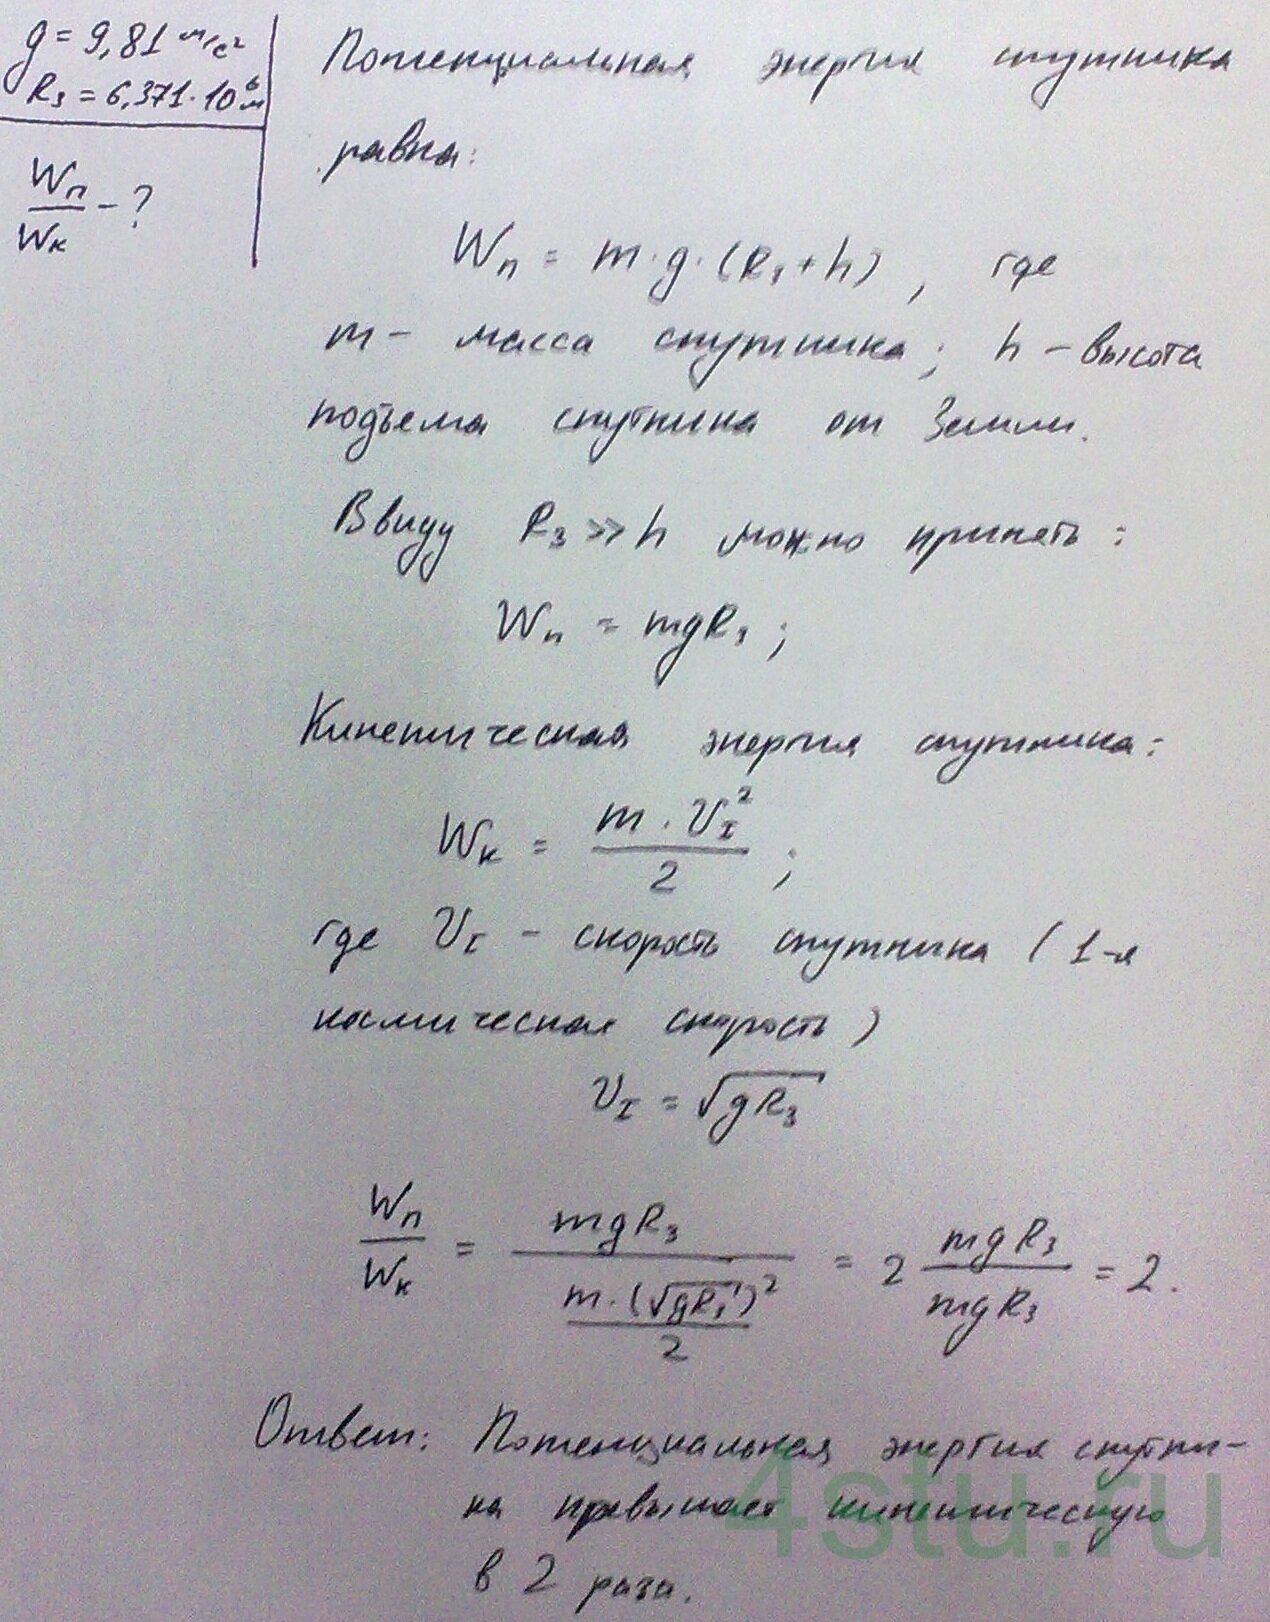 g = 9,81 м/с²
R₃ = 6,371·10⁶ м
Wп/Wк - ?
Потенциальная энергия спутника
равна:
Wп = m·g·(R₃+h), где
m - масса спутника; h - высота
подъема спутника от Земли.
Ввиду R₃ >> h можно принять:
Wп = mgR₃;
Кинетическая энергия спутника:
Wк = m·V_I²/2;
где V_I - скорость спутника (1-я
космическая скорость)
V_I = √gR₃
Wп/Wк = mgR₃/(m·(√gR₃)²/2) = 2 mgR₃/mgR₃ = 2.
Ответ: Потенциальная энергия спутни-
ка превышает кинетическую
в 2 раза.
4stu.ru